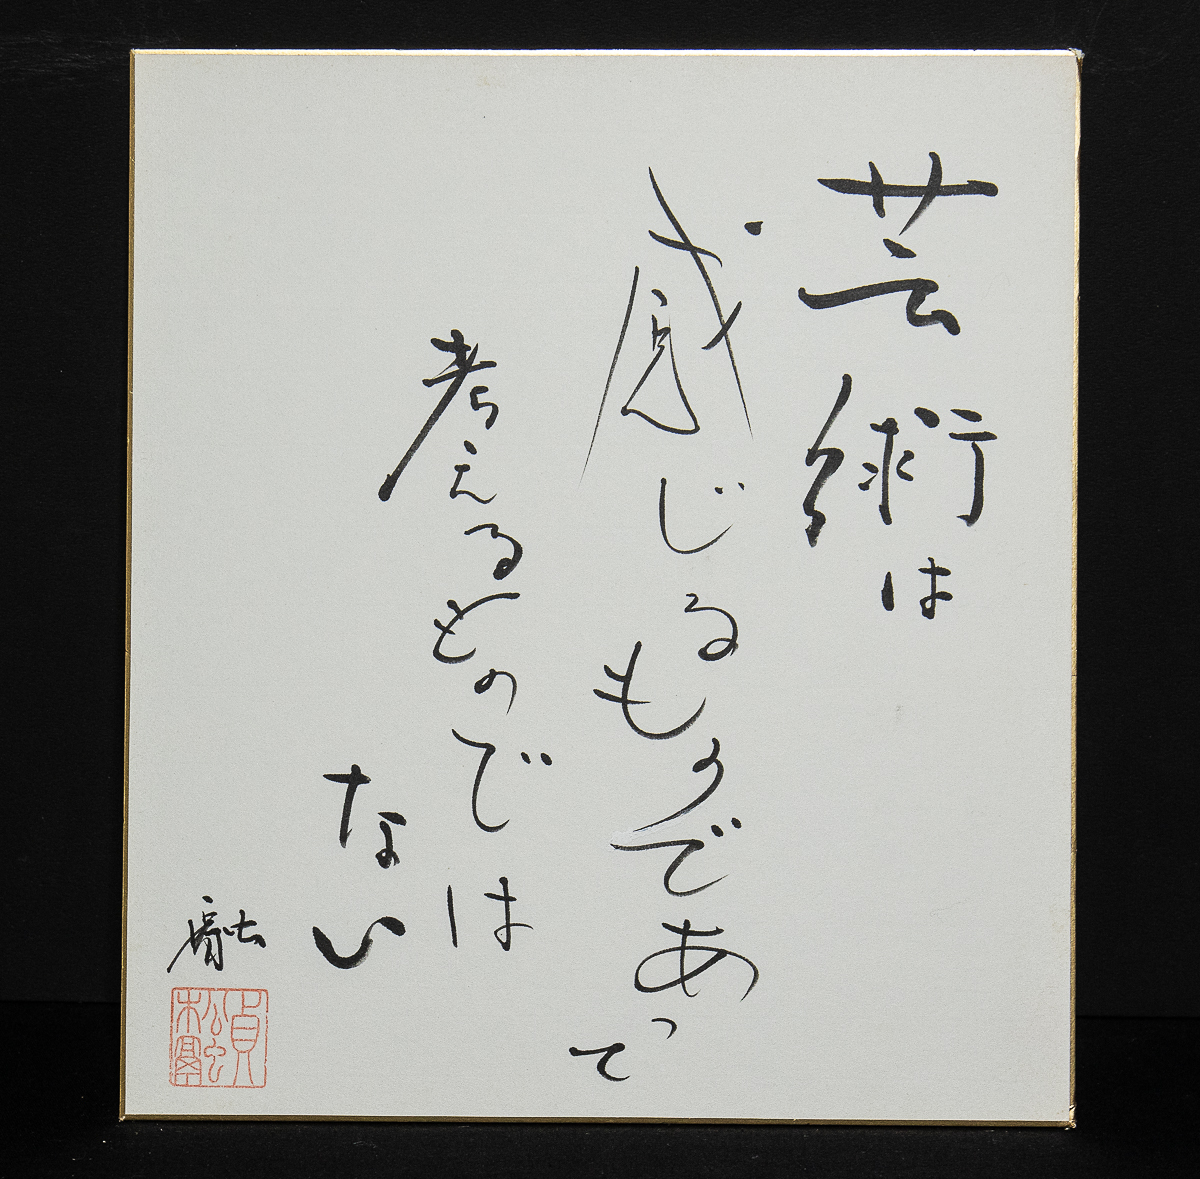 芸術は
感じるものであって
考えるものでは
ない